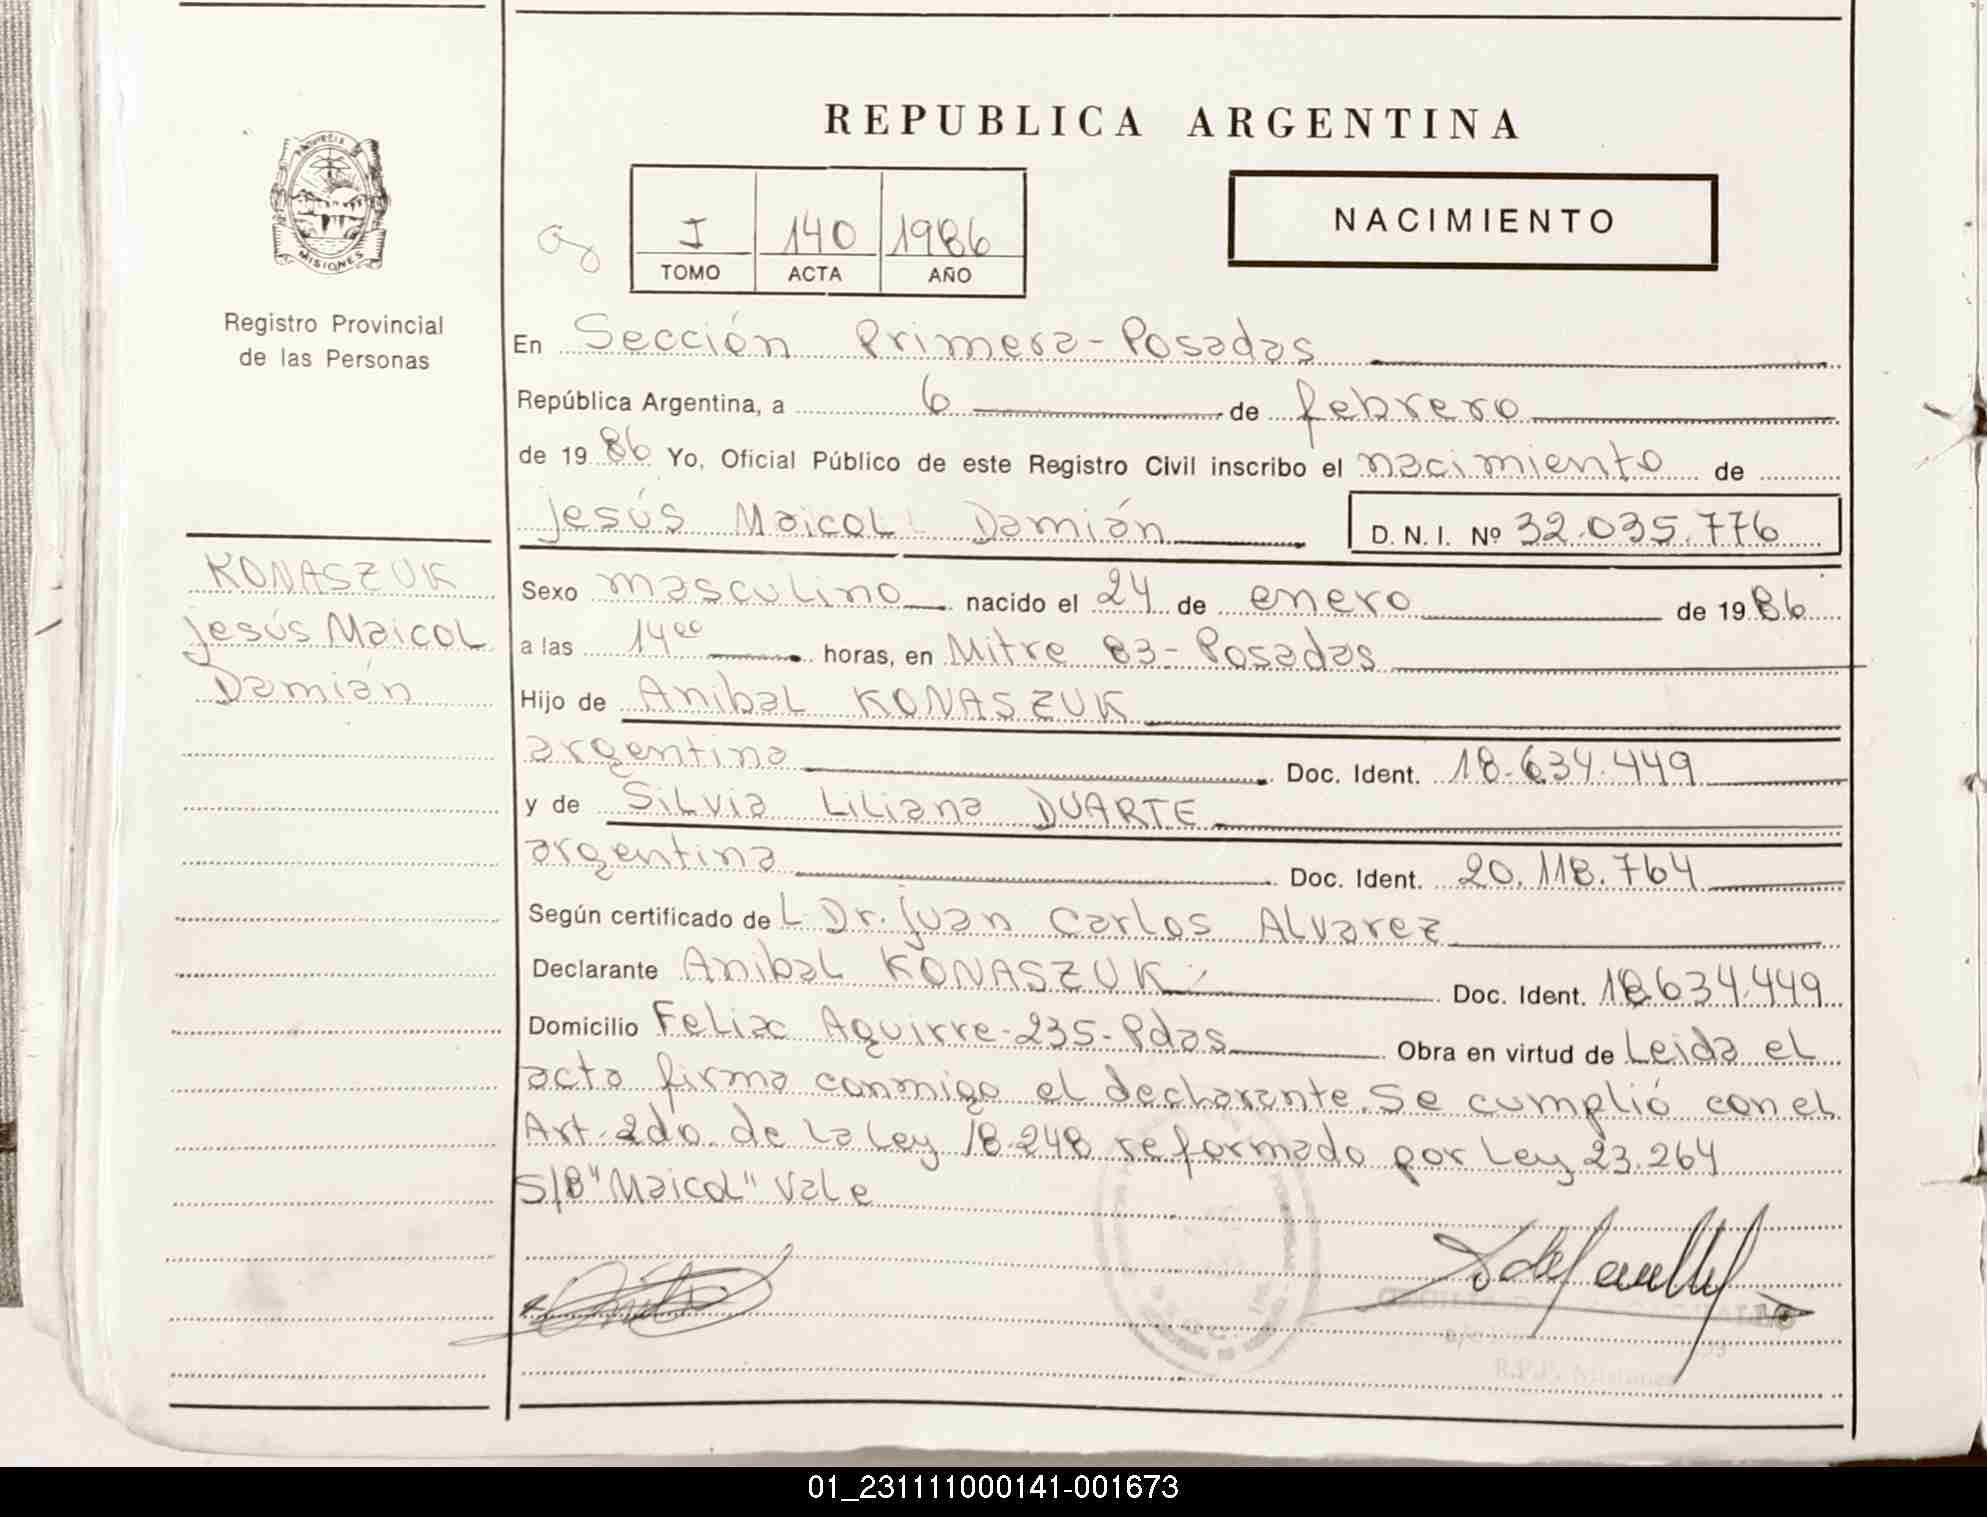 REPUBLICA ARGENTINA
PROVINCIA DE
MISIONES
I 140 1986
TOMO ACTA AÑO
NACIMIENTO
Registro Provincial
de las Personas
En Sección Primera - Posadas
República Argentina, a 6 de febrero
de 1986 Yo, Oficial Público de este Registro Civil inscribo el nacimiento de
Jesús Maicol Damián D. N. I. Nº 32.035.776
KONASZUK
Jesús Maicol
Damián
Sexo masculino nacido el 24 de enero de 1986
a las 14⁰⁰ horas, en Mitre 83 - Posadas
Hijo de Anibal KONASZUK
argentina Doc. Ident. 18.634.449
y de Silvia Liliana DUARTE
argentina Doc. Ident. 20.118.764
Según certificado de L Dr. Juan Carlos Alvarez
Declarante Anibal KONASZUK Doc. Ident. 18634.449
Domicilio Felix Aguirre-235-Pdas Obra en virtud de Leida el
acta firma conmigo el declarante. Se cumplió con el
Art. 2do. de la Ley 18.248 reformado por Ley 23.264
S/B "Maicol" Vale
R.P.P. Misiones
01_231111000141-001673